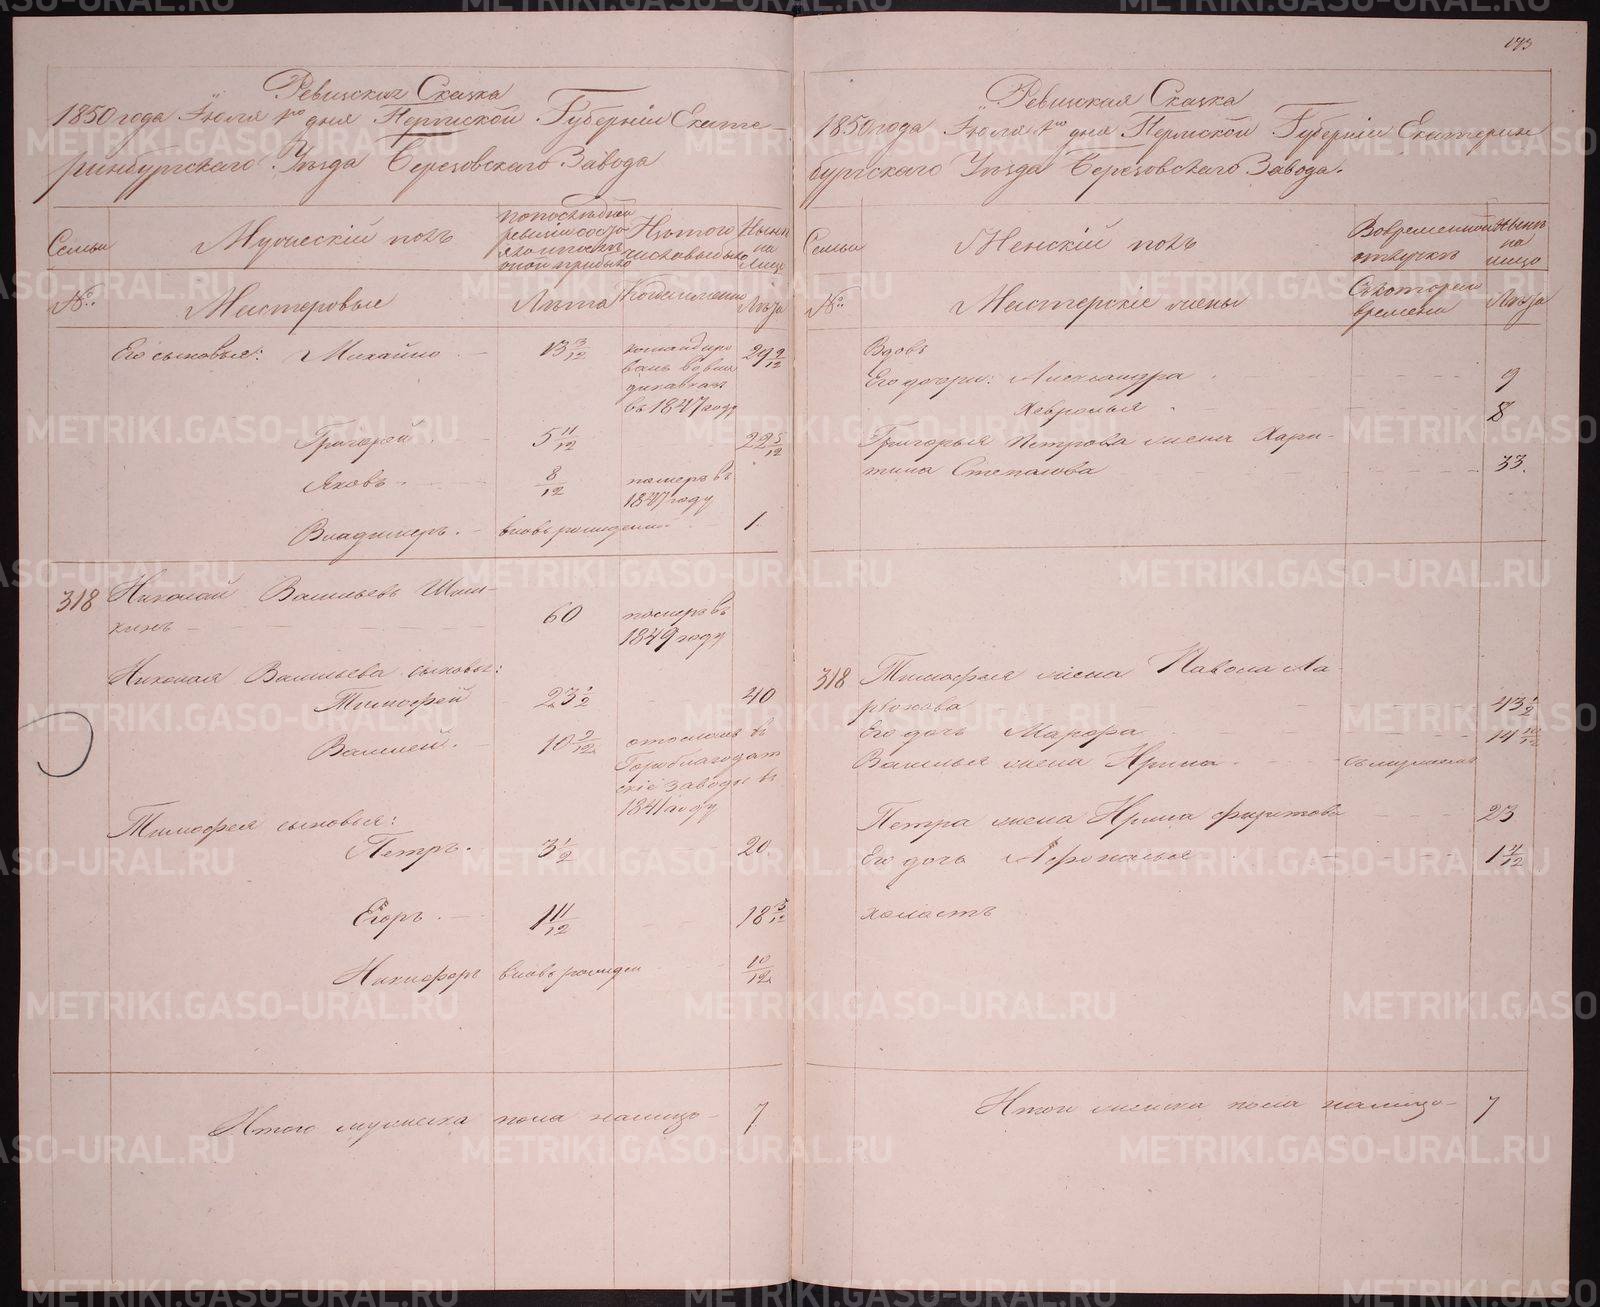 173
Ревизская Сказка
1850 года Июля 1го дня Пермской Губернии Екате-
ринбургского Уезда Березовского Завода
Семьи
Мужеский полъ
Ныне на лицо
№:
Мастеровые
Лета
Когда именно
Лета
Его сыновья: Михайло
13 3/12
командиро
ванъ
въ 1847 году
29 9/12
Григорей
5 11/12
22 5/12
Яковъ
8/12
померъ въ
1847 году
Владимеръ
вновь рожденъ
1
318
Николай Васильевъ
кинъ
60
померъ въ
1849 году
Николая Васильева сыновья:
Тимофей
23 1/2
40
Василей
10 9/12
отосланъ въ
Гороблагодат
скіе заводы въ
1841 году
Тимофея сыновья:
Петръ
3 1/2
20
Егоръ
1 11/12
18 5/12
Никифоръ
вновь рожденъ
10/12
Итого мужеска пола налицо
7
Ревизская Сказка
1850 года Июля 1го дня Пермской Губернии Екатерин
бургского Уезда Березовского Завода.
Семьи
Женскій полъ
Вовременной
отлучкъ
Ныне на лицо
№:
Мастерскіе жены
Съ котораго
времени
Лета
Вдовъ
Его дочери: Александра
9
Хевронья
8
Григорья Петрова жена Хари-
тина Степанова
33.
318
Тимофея жена Павола Ла-
ріонова
43 1/2
Его дочь Марфа
14 10/12
Василья жена Ирина
съ мужемъ
Петра жена Ирина
23
Его дочь Афонасья
1 4/12
холостъ
Итого женска пола налицо
7
METRIKI.GASO-URAL.RU